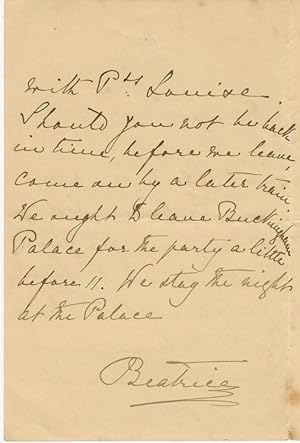 with Pss Louise.
Should you not be back
in time, before we leave,
come on by a later train.
We ought to leave Buckingham
Palace for the party a little
before 11. We stay the night
at the Palace
Beatrice